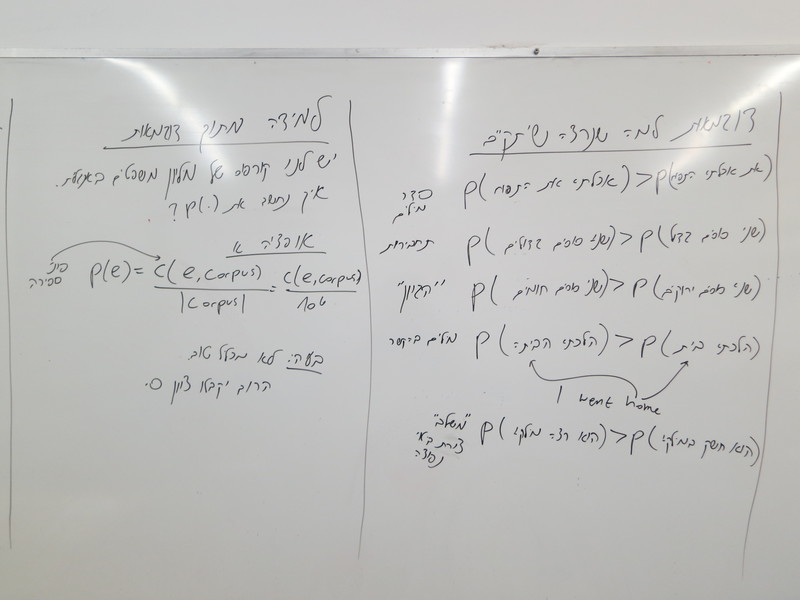 דוגמאות למה שנרצה שיתקיים
סדר מילים p(אכלתי את התפוח) > p(את אכלתי התפוח)
תחביריות p(שני סוסים גדולים) > p(שני סוסים גדול)
"הגיון" p(שני סוסים חומים) > p(שני סוסים ירוקים)
מילים בהקשר p(הלכתי הביתה) > p(הלכתי בית)
I went home
"משלב" p(הוא רצה מלפי) > p(הוא חשק במלפי)
צורת
נפוצה
למידה מתוך דוגמאות
יש לנו קורפוס של מליון משפטים באנגלית.
איך נחשב את p(.)?
אופציה א
פונ' ספירה p(e) = c(e, corpus) / |corpus| = c(e, corpus) / 10⁶
בעיה: לא מכליל טוב
הרוב יקבלו ציון 0.